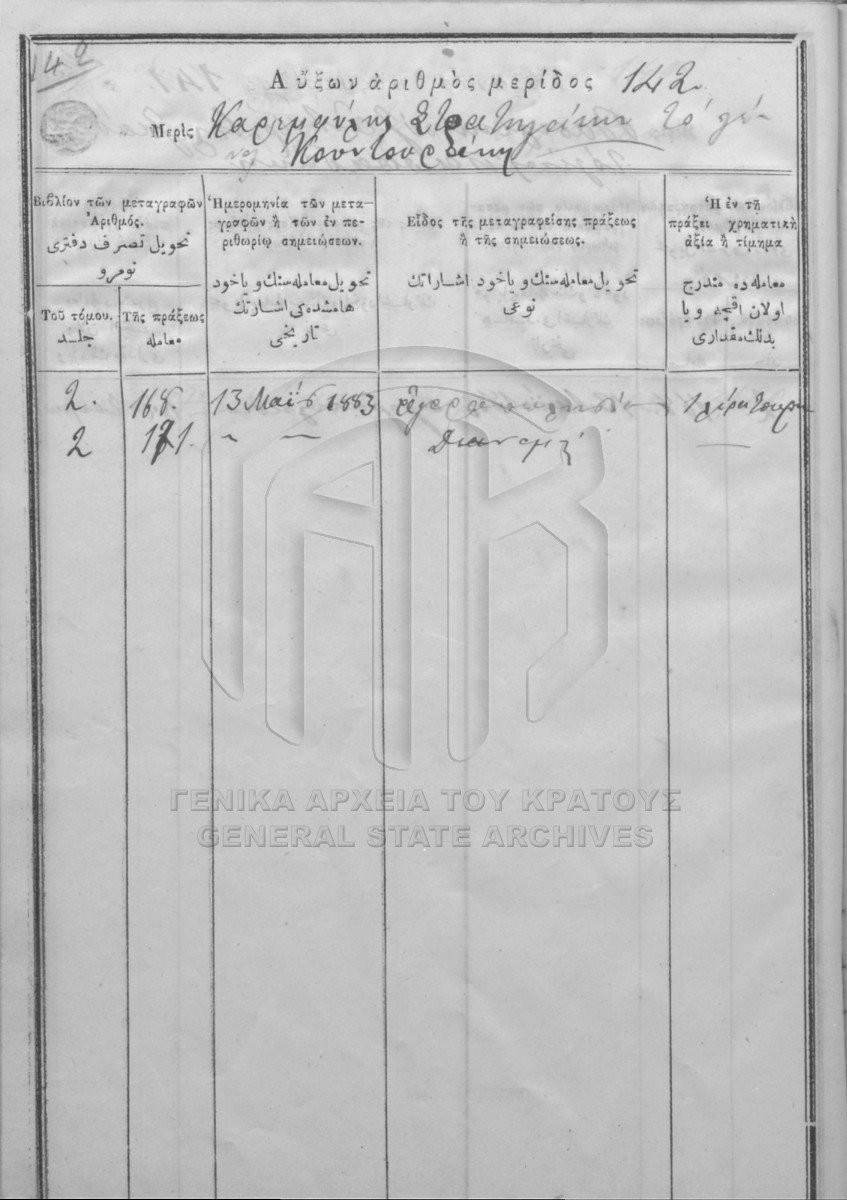 142
Αὔξων ἀριθμὸς μερίδος 142.
Μερὶς Στρατηγάκη τὸ γέ-
νος
Βιβλίον τῶν μεταγραφῶν
Ἀριθμός.
تحويل تصرف دفترى
نومرو
Τοῦ τόμου.
جلد
Τῆς πράξεως
معامله
Ἡμερομηνία τῶν μετα-
γραφῶν ἢ τῶν ἐν πε-
ριθωρίῳ σημειώσεων.
تحويل معامله سنك وياخود
هامشده كى اشارتك
تاريخى
Εἶδος τῆς μεταγραφείσης πράξεως
ἢ τῆς σημειώσεως.
تحويل معامله سنك وياخود اشارتك
نوعى
Ἡ ἐν τῇ
πράξει χρηματικὴ
ἀξία ἢ τίμημα
معامله ده مندرج
اولان اقچه ويا
بدلك مقدارى
2. 168. 13 Μαΐου 1883 1 λίρα
2 171. " — Διανομή —
ΓΕΝΙΚΑ ΑΡΧΕΙΑ ΤΟΥ ΚΡΑΤΟΥΣ
GENERAL STATE ARCHIVES